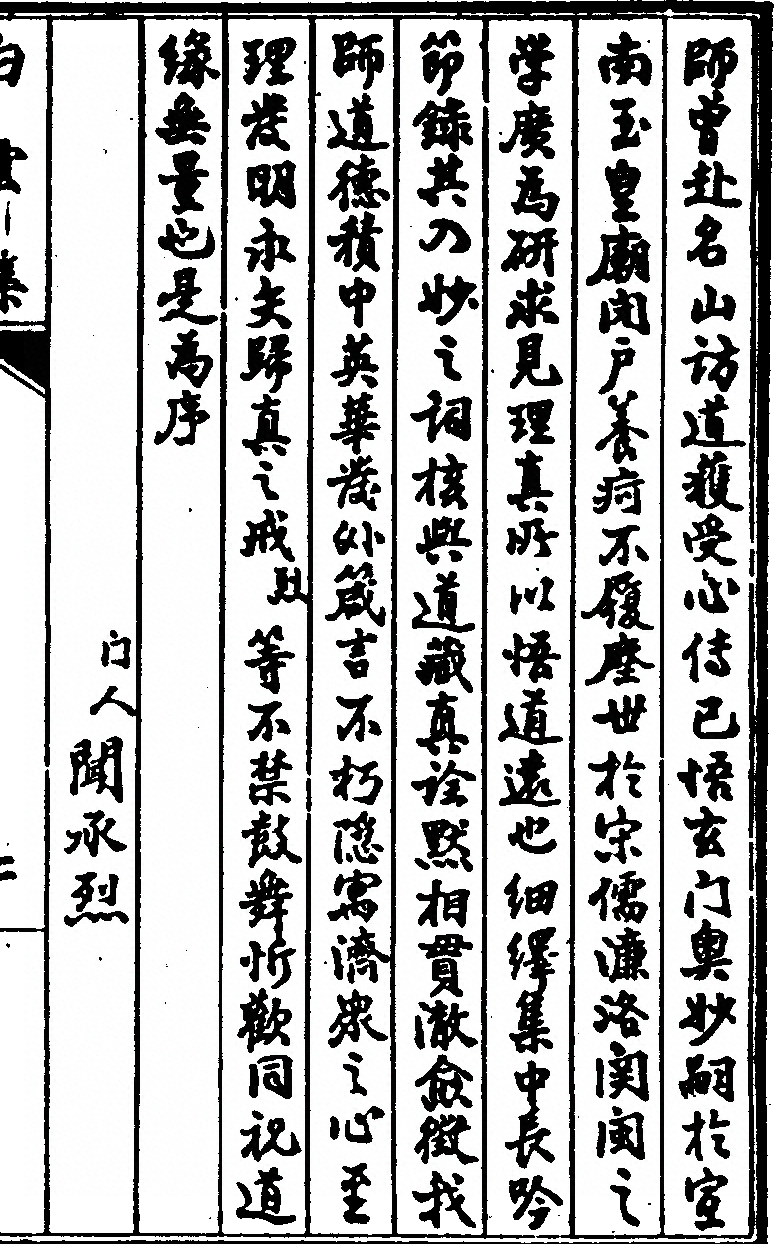 師曾赴名山访道獲受心傳已悟玄门奥妙嗣於宣
南玉皇廟闭户養疴不履塵世於宋儒濂洛関闽之
学廣為研求見理真所以悟道遠也細繹集中長吟
節錄其入妙之詞核與道藏真詮默相貫澈僉徵我
師道德積中英華發外箴言不朽隐寓濟眾之心至
理發明永矢歸真之戒烈等不禁鼓舞忻歡同祝道
緣無量也是為序
门人聞承烈
白雲集
二